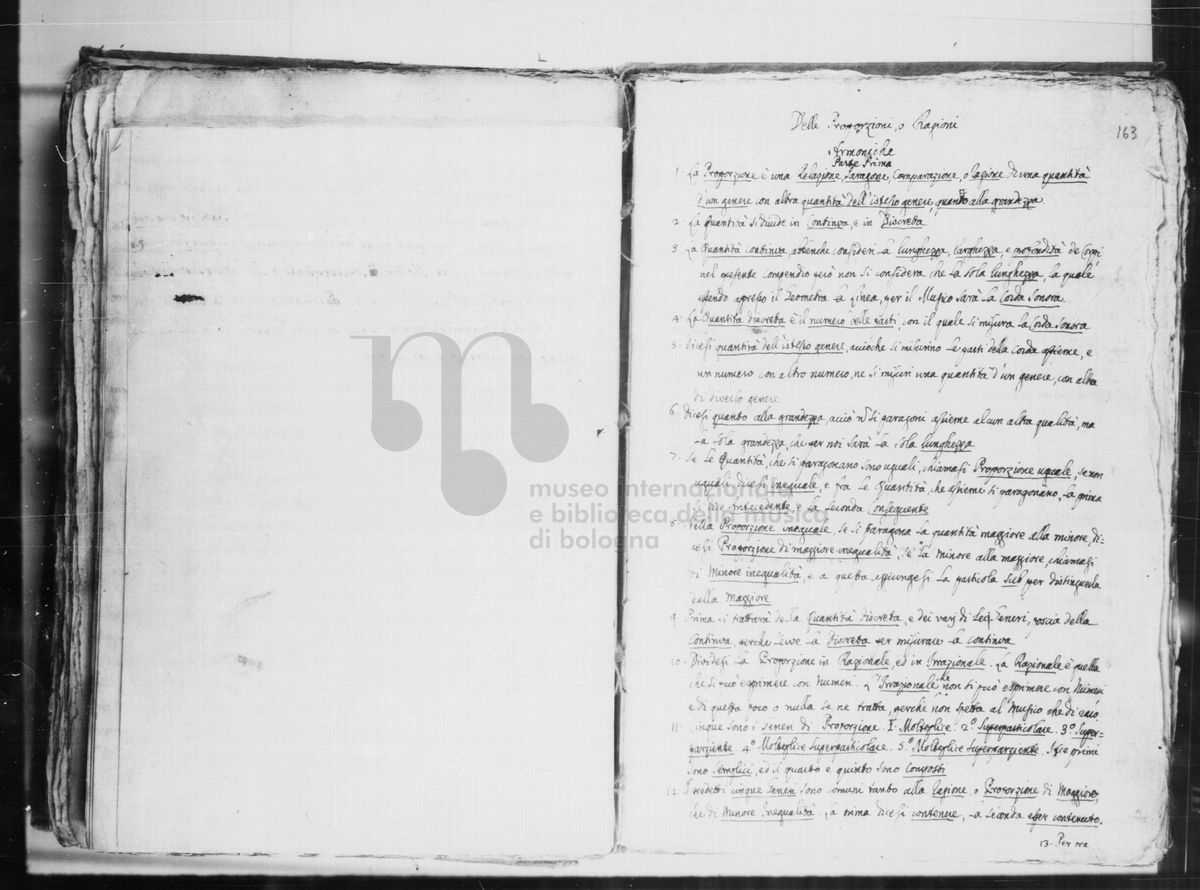 163
Delle Proporzioni, o Ragioni
Armoniche
Parte Prima
1. La Proporzione è una Relazione, Paragone, Comparazione, o Ragione di una quantità
d'un genere con altra quantità dell'istesso genere, quanto alla grandezza
2. La Quantità si divide in Continva, e in Discreta
3. La Quantità continva, abbenche consideri la lunghezza, larghezza, e profondità de Corpi
nel presente Compendio però non si considera che la sola lunghezza, la quale
essendo appresso il Geometra la Linea, per il Musico sarà la Corda Sonora
4. La Quantità discreta è il numero delle parti, con il quale si misura la Corda Sonora
5. Dicesi quantità dell'istesso genere, acciòche si misurino le parti della Corda assieme, e
un numero con altro numero, ne si misuri una quantità d'un genere, con altra
di diverso genere
6. Dicesi quanto alla grandezza, acciò nõ si paragoni assieme alcun altra qualità, ma
la sola grandezza, che per noi sarà la sola lunghezza
7. Se le Quantità, che si paragonano sono uguali, chiamasi Proporzione uguale, se non
uguali dicesi inequale, e fra le Quantità, che assieme si paragonano, la prima
si dice antecedente, e la seconda Conseguente
8. Nella Proporzione inequale, se si paragona la quantità maggiore alla minore, di=
cesi Proporzione di maggiore inequalità, se la minore alla maggiore, chiamasi
di Minore inequalità e a questa aggiungesi la particola Sub per distinguerla
dalla Maggiore
9. Prima si trattarà della Quantità Discreta, e dei varj di Lei Generi, poscia della
Continva, perche serve la Discreta per misurare la continva
10. Dividesi la Proporzione in Razionale, ed in Irrazionale. La Razionale è quella
che si può esprimere con Numeri. L'Irrazionale che non si può esprimere con Numeri
e di questa poco o nulla se ne tratta, perche non spetta al Musico che di rado,
11. Cinque sono i Generi di Proporzione. I. Molteplice. 2º Superparticolare. 3º Super=
parziente. 4º Molteplice Superparticolare. 5º Molteplice Superparziente. I tre primi
sono Semplici, ed il quarto e quinto sono Composti
12. I predetti cinque Generi sono comuni tanto alla Ragione, o Proporzione di Maggiore,
che di Minore Inequalità. La prima dicesi contenere, la seconda esser contenuto.
13. Per ora
museo internazionale
e biblioteca della musica
di bologna